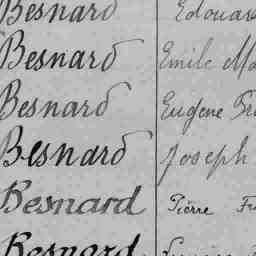 Besnard Edouard
Besnard Emile
Besnard Eugene
Besnard Joseph
Besnard Pierre
Besnard